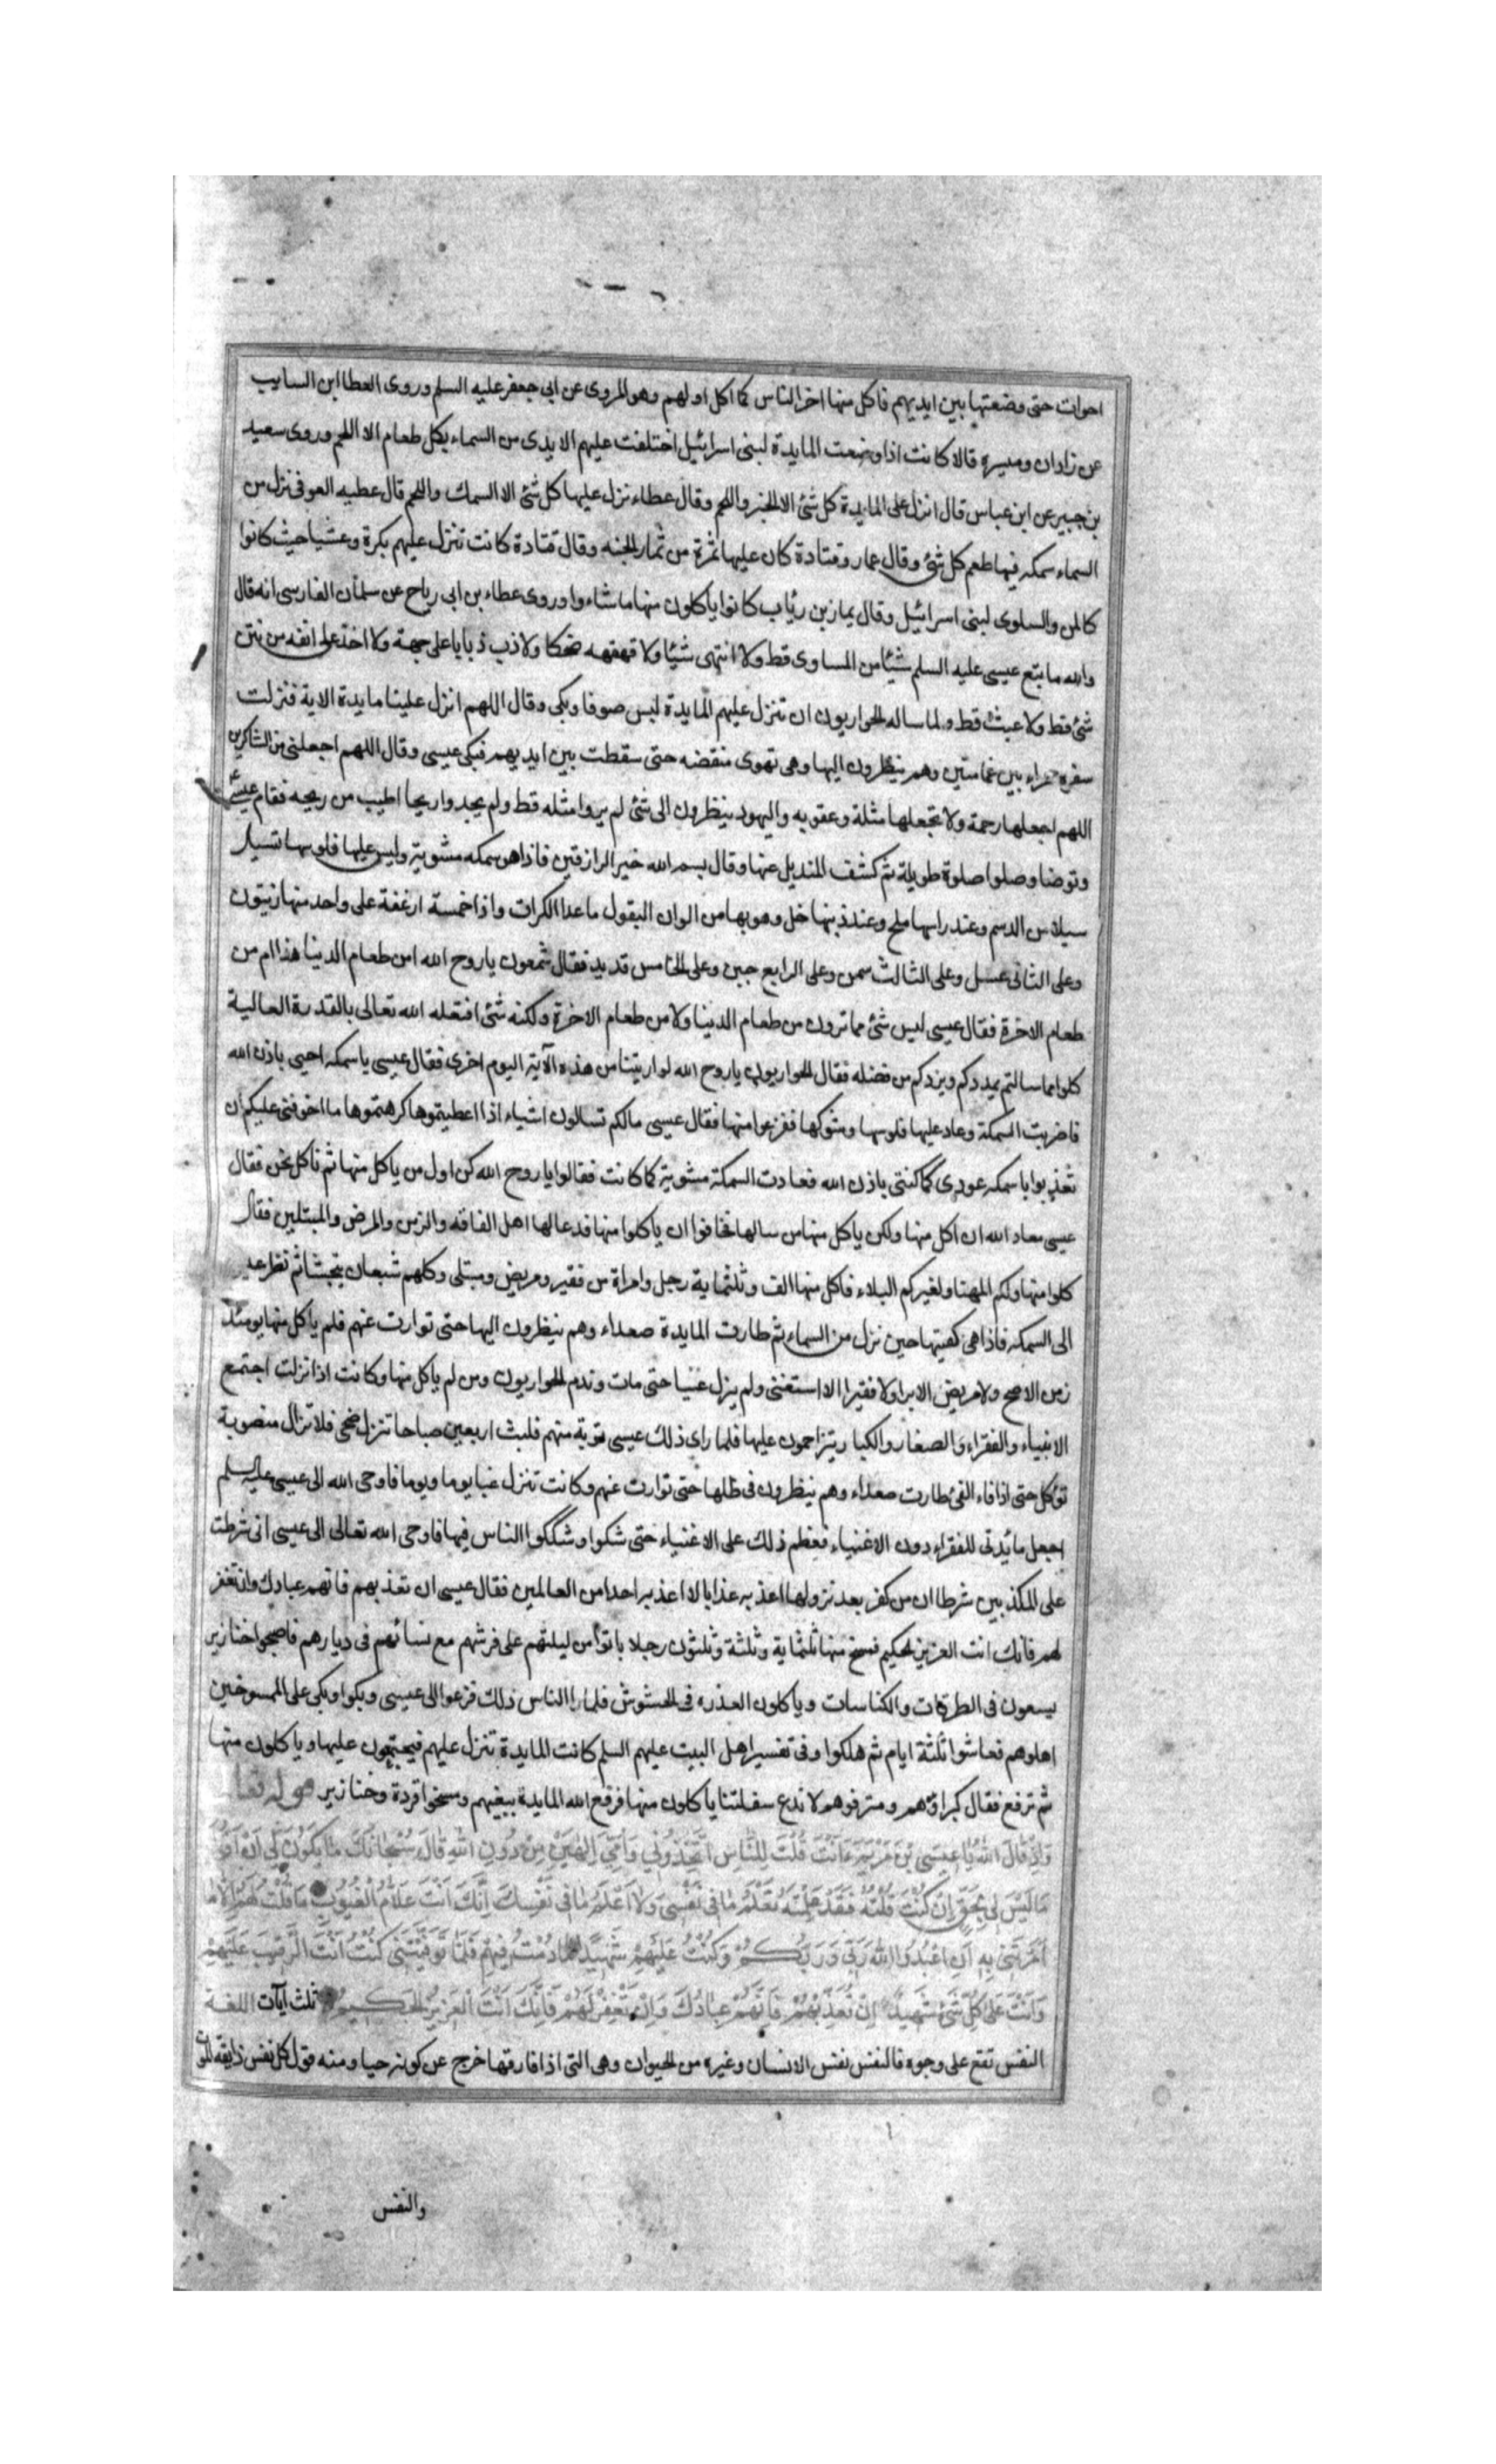 احوات حتى وضعتها بين ايديهم فاكل منها اخر الناس كما اكل اولهم وهو المروى عن ابى جعفر عليه السلم وروى العطا ابن السايب
عن زادان وميسره قالا كانت اذا وضعت المايدة لبنى اسرائيل اختلفت عليهم الايدى من السماء بكل طعام الا اللحم وروى سعيد
بن جبير عن ابن عباس قال انزل على المايدة كل شئ الا الخبز واللحم وقال عطاء نزل عليها كل شئ الا السمك واللحم قال عطيه العوفى نزل من
السماء سمكه فيها طعم كل شئ وقال عمار وقتادة كان عليها ثمرة من ثمار الجنه وقال قتادة كانت تنزل عليهم بكرة وعشيا حيث كانوا
كالمن والسلوى لبنى اسرائيل وقال يمازبن رئاب كانوا ياكلون منها ما شاءوا وروى عطاء بن ابى رياح عن سلمان الفارسى انه قال
والله ما يتبع عيسى عليه السلم شيئا من المساوى قط ولا انتهى شيئا ولا قهقهه ضحكا ولا ذب ذبابا على جهة ولا اخذ على انفه من نتن
شئ قط ولا عبث قط ولما ساله الحواريون ان تنزل عليهم المايدة لبس صوفا وبكى وقال اللهم انزل علينا مايدة الاية فنزلت
سفره حمراء بين غمامتين وهم ينظرون اليها وهى تهوى منقضه حتى سقطت بين ايديهم فبكى عيسى وقال اللهم اجعلنى من الشاكرين
اللهم اجعلها رحمة ولا تجعلها مثلة وعقوبه واليهود ينظرون الى شئ لم يروا مثله قط ولم يجدوا ريحا اطيب من ريحه فقام عيسى
وتوضا وصلوا صلوة طويلة ثم كشف المنديل عنها وقال بسم الله خير الرازقين فاذا هى سمكه مشوية وليس عليها فلوسها تسيل
سيلا من الدسم وعند راسها ملح وعند ذنبها خل وهو بها من الوان البقول ما عدا الكراث واذا خمسة ارغفة على واحد منها زيتون
وعلى الثانى عسل وعلى الثالث سمن وعلى الرابع جبن وعلى الخامس قديد فقال شمعون ياروح الله امن طعام الدينا هذا ام من
طعام الاخرة فقال عيسى ليس شئ مما ترون من طعام الدينا ولا من طعام الاخرة ولكنه شئ افتعله الله تعالى بالقدرة العالية
كلوا مما سالتم يمددكم ويزدكم من فضله فقال الحواريون ياروح الله لو اريتنا من هذه الآية اليوم اخرى فقال عيسى يا سمكه احيى باذن الله
فاضربت السمكة وعاد عليها فلوسها وشوكها ففزعوا منها فقال عيسى مالكم تسالون اشياء اذا اعطيتموها كرهتموها ما اخوفنى عليكم ان
تعذبوا يا سمكه عودى كما كنتى باذن الله فعادت السمكة مشوية كما كانت فقالوا ياروح الله كن اول من ياكل منها ثم ناكل نحن فقال
عيسى معاد الله ان اكل منها ولكن ياكل منها من سالها فخافوا ان ياكلوا منها فدعا لها اهل الفاقه والزمن والمرض والمبتلين فقال
كلوا منها ولكم المهنا ولغيركم البلاء فاكل منها الف وثلثماية رجل وامراة من فقير ومريض ومبتلى وكلهم شبعان يتجشا ثم نظر عيسى
الى السمكه فاذا هى كهيتها حين نزل من السماء ثم طارت المايدة صعداء وهم ينظرون اليها حتى توارت عنهم فلم ياكل منها يومئذ
زمن الا صح ولا مريض الا برا ولا فقيرا الا استغنى ولم يزل غنيا حتى مات وندم الحواريون ومن لم ياكل منها وكانت اذا نزلت اجتمع
الاغنياء والفقراء والصغار والكبار يتزاحمون عليها فلما راى ذلك عيسى نوبة منهم فلبث اربعين صباحا تنزل ضحى فلا تزال منصوبة
تؤكل حتى اذا فاء الفئ طارت صعداء وهم ينظرون فى ظلها حتى توارت عنهم وكانت تنزل غبا يوما ويوما فاوحى الله الى عيسى عليه السلم
اجعل مائدتى للفقراء دون الاغنياء فعظم ذلك على الاغنياء حتى شكوا وشككوا الناس فيها فاوحى الله تعالى الى عيسى انى شرطت
على المكذبين شرطا ان من كفر بعد نزولها اعذبه عذابا لا اعذبه احدا من العالمين فقال عيسى ان تعذبهم فانهم عبادك وان تغفر
لهم فانك انت العزيز الحكيم فمسخ منها ثلثماية وثلثة وثلثون رجلا باتوا من ليلتهم على فرشهم مع نسائهم فى ديارهم فاصبحوا خنازير
يسعون فى الطرقات والكناسات وياكلون العذره فى الحشوش فلما را الناس ذلك فزعوا الى عيسى وبكوا وبكى على الممسوخين
اهلوهم فعاشوا ثلثة ايام ثم هلكوا وفى تفسير اهل البيت عليهم السلم كانت المايدة تنزل عليهم فيجتمعون عليها وياكلون منها
ثم ترفع فقال كبراؤهم ومترفوهم لا ندع سفلتنا ياكلون منها فرفع الله المايدة ببغيهم ومسخوا قردة وخنازير قوله تعا
وَاِذْ قَالَ اللهُ يَا عِيسَى بْنَ مَرْيَمَ ءَاَنْتَ قُلْتَ لِلنَّاسِ اتَّخِذُونِي وَاُمِّيَ اِلٰهَيْنِ مِنْ دُونِ اللهِ قَالَ سُبْحَانَكَ مَا يَكُونُ لِي اَنْ اَقُولَ
مَا لَيْسَ لِي بِحَقٍّ اِنْ كُنْتُ قُلْتُهُ فَقَدْ عَلِمْتَهُ تَعْلَمُ مَا فِي نَفْسِي وَلَا اَعْلَمُ مَا فِي نَفْسِكَ اِنَّكَ اَنْتَ عَلَّامُ الْغُيُوبِ مَا قُلْتُ لَهُمْ اِلَّا مَا
اَمَرْتَنِي بِهِ اَنِ اعْبُدُوا اللهَ رَبِّي وَرَبَّكُمْ وَكُنْتُ عَلَيْهِمْ شَهِيدًا مَا دُمْتُ فِيهِمْ فَلَمَّا تَوَفَّيْتَنِي كُنْتَ اَنْتَ الرَّقِيبَ عَلَيْهِمْ
وَاَنْتَ عَلَى كُلِّ شَيْءٍ شَهِيدٌ اِنْ تُعَذِّبْهُمْ فَاِنَّهُمْ عِبَادُكَ وَاِنْ تَغْفِرْ لَهُمْ فَاِنَّكَ اَنْتَ الْعَزِيزُ الْحَكِيمُ ثلث آيات اللغة
النفس تقع على وجوه فالنفس نفس الانسان وغيره من الحيوان وهى التى اذا فارقتها خرج عن كونه حيا ومنه قول كل نفس ذايقه الموت
والنفس